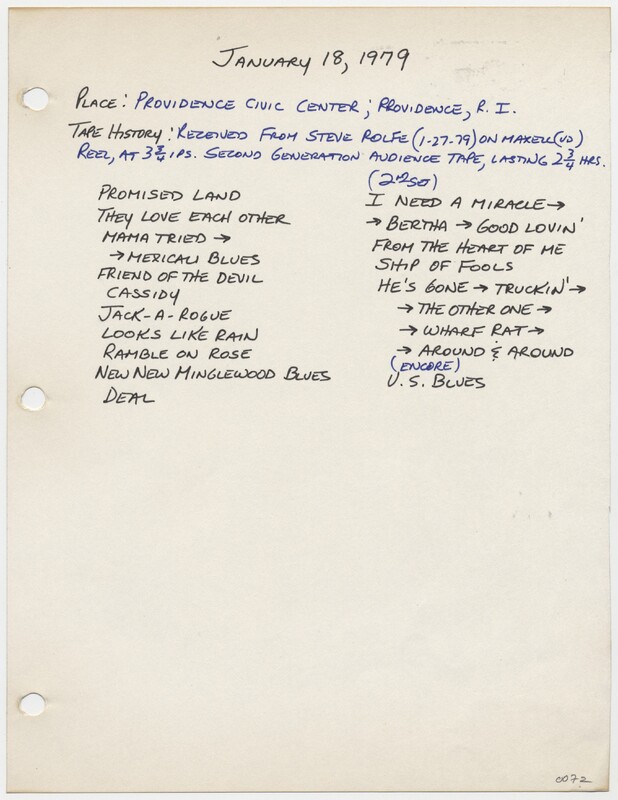 JANUARY 18, 1979
PLACE: PROVIDENCE CIVIC CENTER; PROVIDENCE, R. I.
TAPE HISTORY: RECEIVED FROM STEVE ROLFE (1-27-79) ON MAXELL (UD)
REEL, AT 3 3/4 IPS. SECOND GENERATION AUDIENCE TAPE, LASTING 2 3/4 HRS.
PROMISED LAND
THEY LOVE EACH OTHER
MAMA TRIED →
→ MEXICALI BLUES
FRIEND OF THE DEVIL
CASSIDY
JACK-A-ROGUE
LOOKS LIKE RAIN
RAMBLE ON ROSE
NEW NEW MINGLEWOOD BLUES
DEAL
(2ND SET)
I NEED A MIRACLE →
→ BERTHA → GOOD LOVIN'
FROM THE HEART OF ME
SHIP OF FOOLS
HE'S GONE → TRUCKIN' →
→ THE OTHER ONE →
→ WHARF RAT →
→ AROUND & AROUND
(ENCORE)
U. S. BLUES
0072